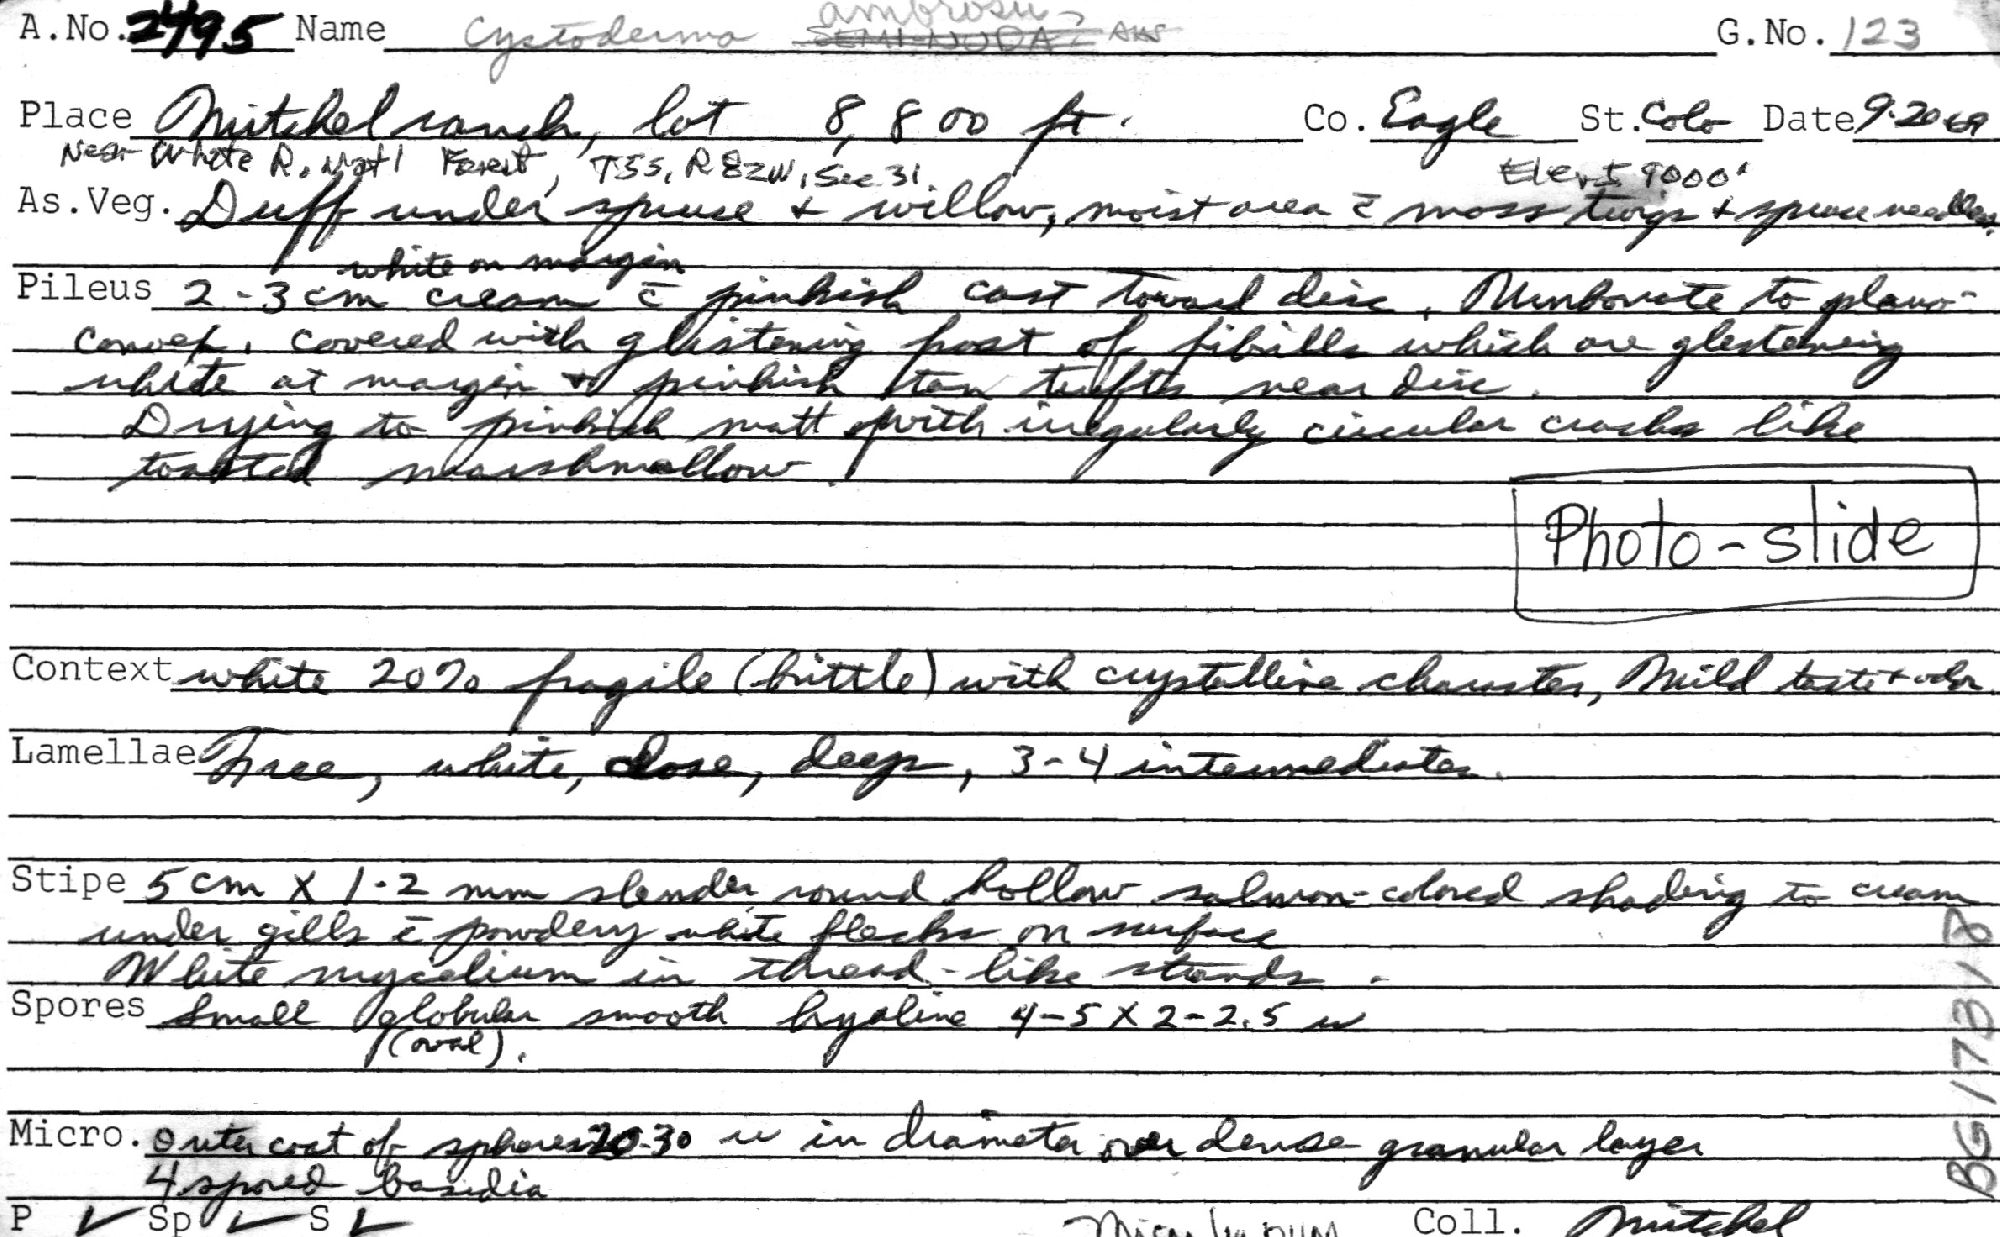 A.No. 2495 Name Cystoderma ambrosii SEMI-NUDA? AHS G.No. 123
Place Mitchel ranch, lot 8, 800 ft. Co. Eagle St. Colo Date 9.20 69
Near White R. Nat'l Forest, T5S, R82W, Sec 31. Elev ± 9000'
As.Veg. Duff under spruse + willow, moist area c̄ moss twigs + spruce needles.
white on margin
Pileus 2-3 cm cream c̄ pinkish cast toward disc, Umbonate to plano-
convex, covered with glistening frost of fibrills which are glistening
white at margin + pinkish tan tufts near disc.
Drying to pinkish matt with irregularly circular cracks like
toasted marshmallow.
Photo-slide
Context white 20% fragile (brittle) with crystalline character, Mild taste + odor
Lamellae Free, white, close, deep, 3-4 intermediates.
Stipe 5 cm X 1-2 mm slender round hollow salmon-colored shading to cream
under gills c̄ powdery white flecks on surface
White mycelium in thread-like strands.
Spores Small globular smooth hyaline 4-5 X 2-2.5 u
(oval).
Micro. Outer coat of spheres 20-30 u in diameter over dense granular layer
4 spored basidia
P ✓ Sp ✓ S ✓ Coll. Mitchel
BG 17318